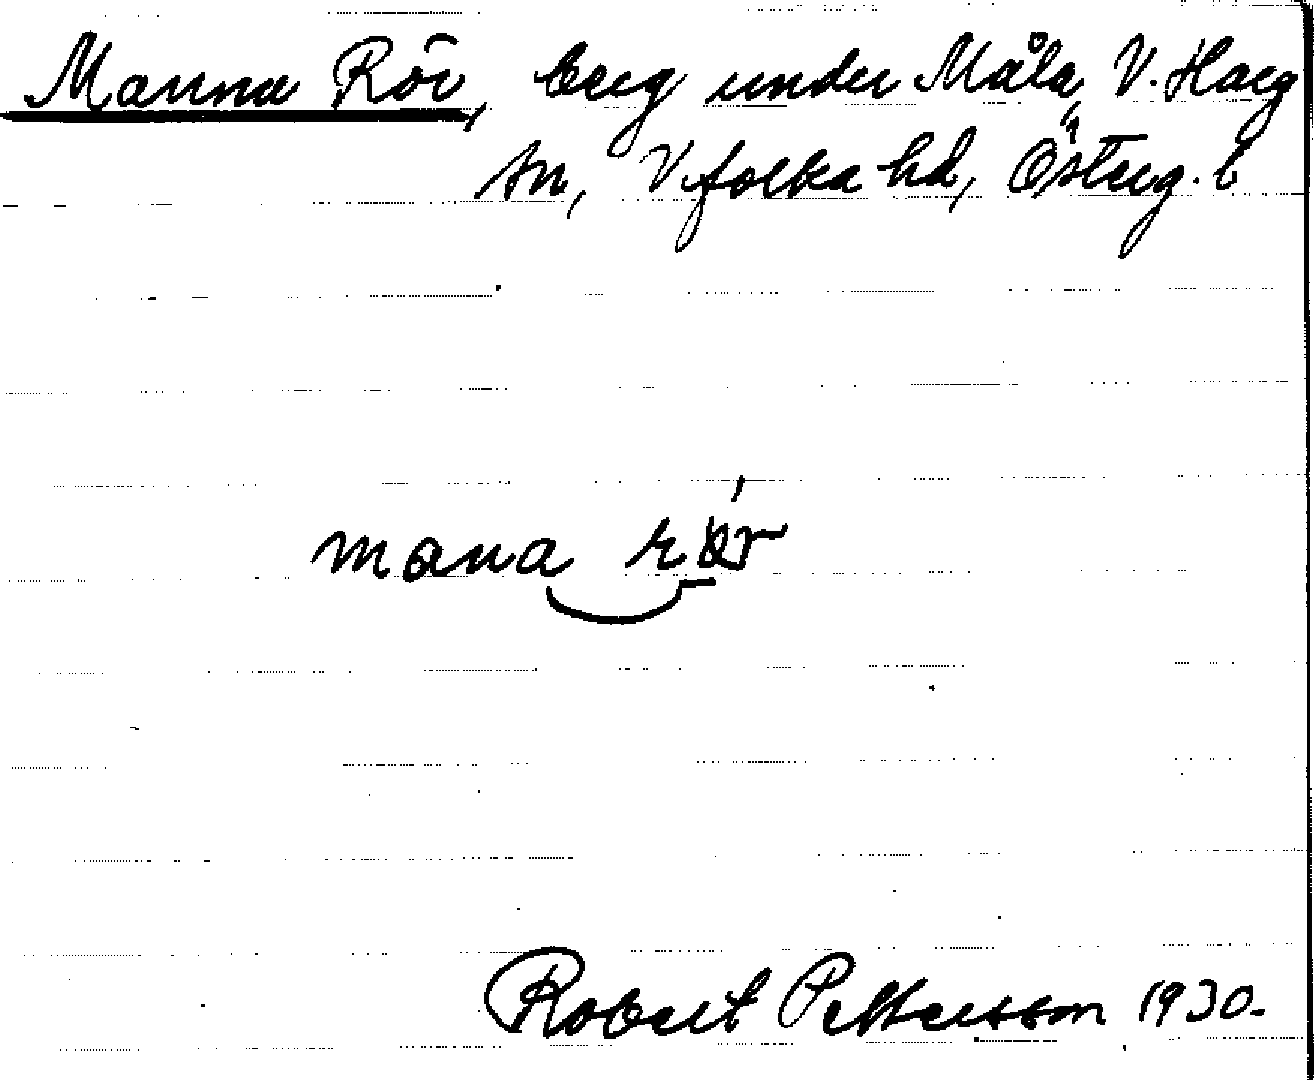 Manna Rör, berg under Måla, V. Harg
sn, Vifolka hd, Österg. l
mana
Robert Pettersson 1930.